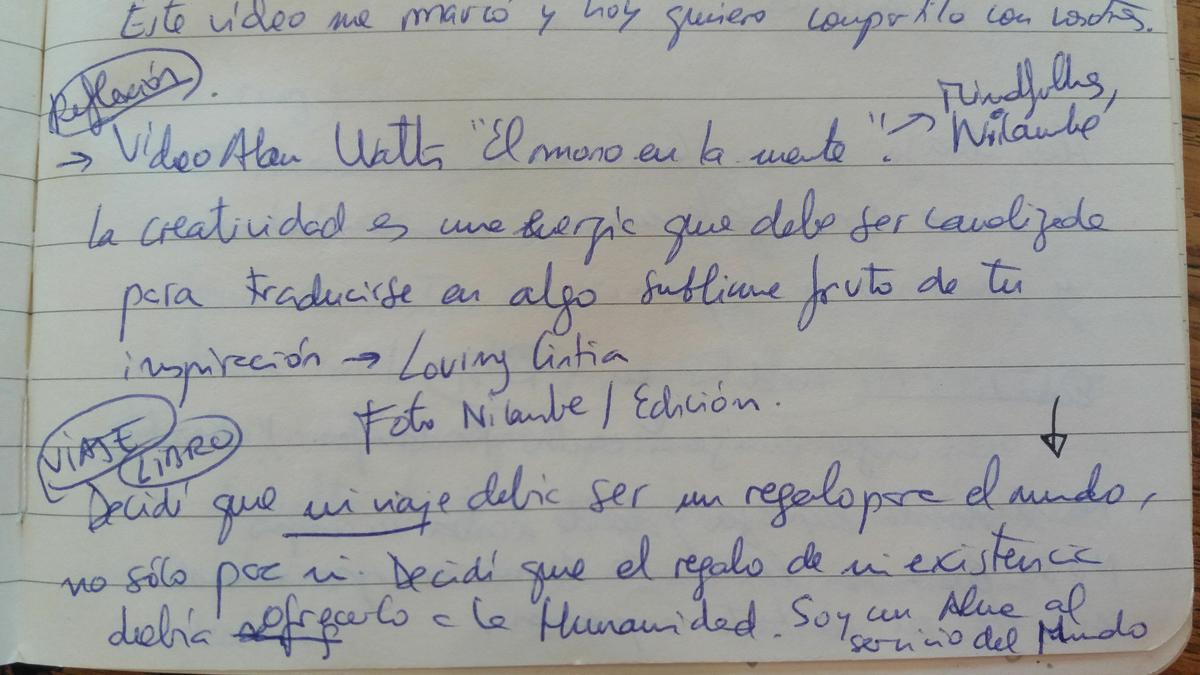 Este video me marcó y hoy quiero compartilo con vosotros.
Reflexión.
Mindfulness,
→ Vídeo Alan Watts "El mono en la mente". → Nilambe
La creatividad es una energía que debe ser canalizada
para traducirse en algo sublime fruto de tu
inspiración → Loving Cintia
Foto Nilambe / Edición.
VIAJE
LIBRO
Decidí que mi viaje debía ser un regalo para el mundo,
no sólo para mi. Decidí que el regalo de mi existencia
debía ofrecerlo a la Humanidad. Soy un Alma al
servicio del Mundo